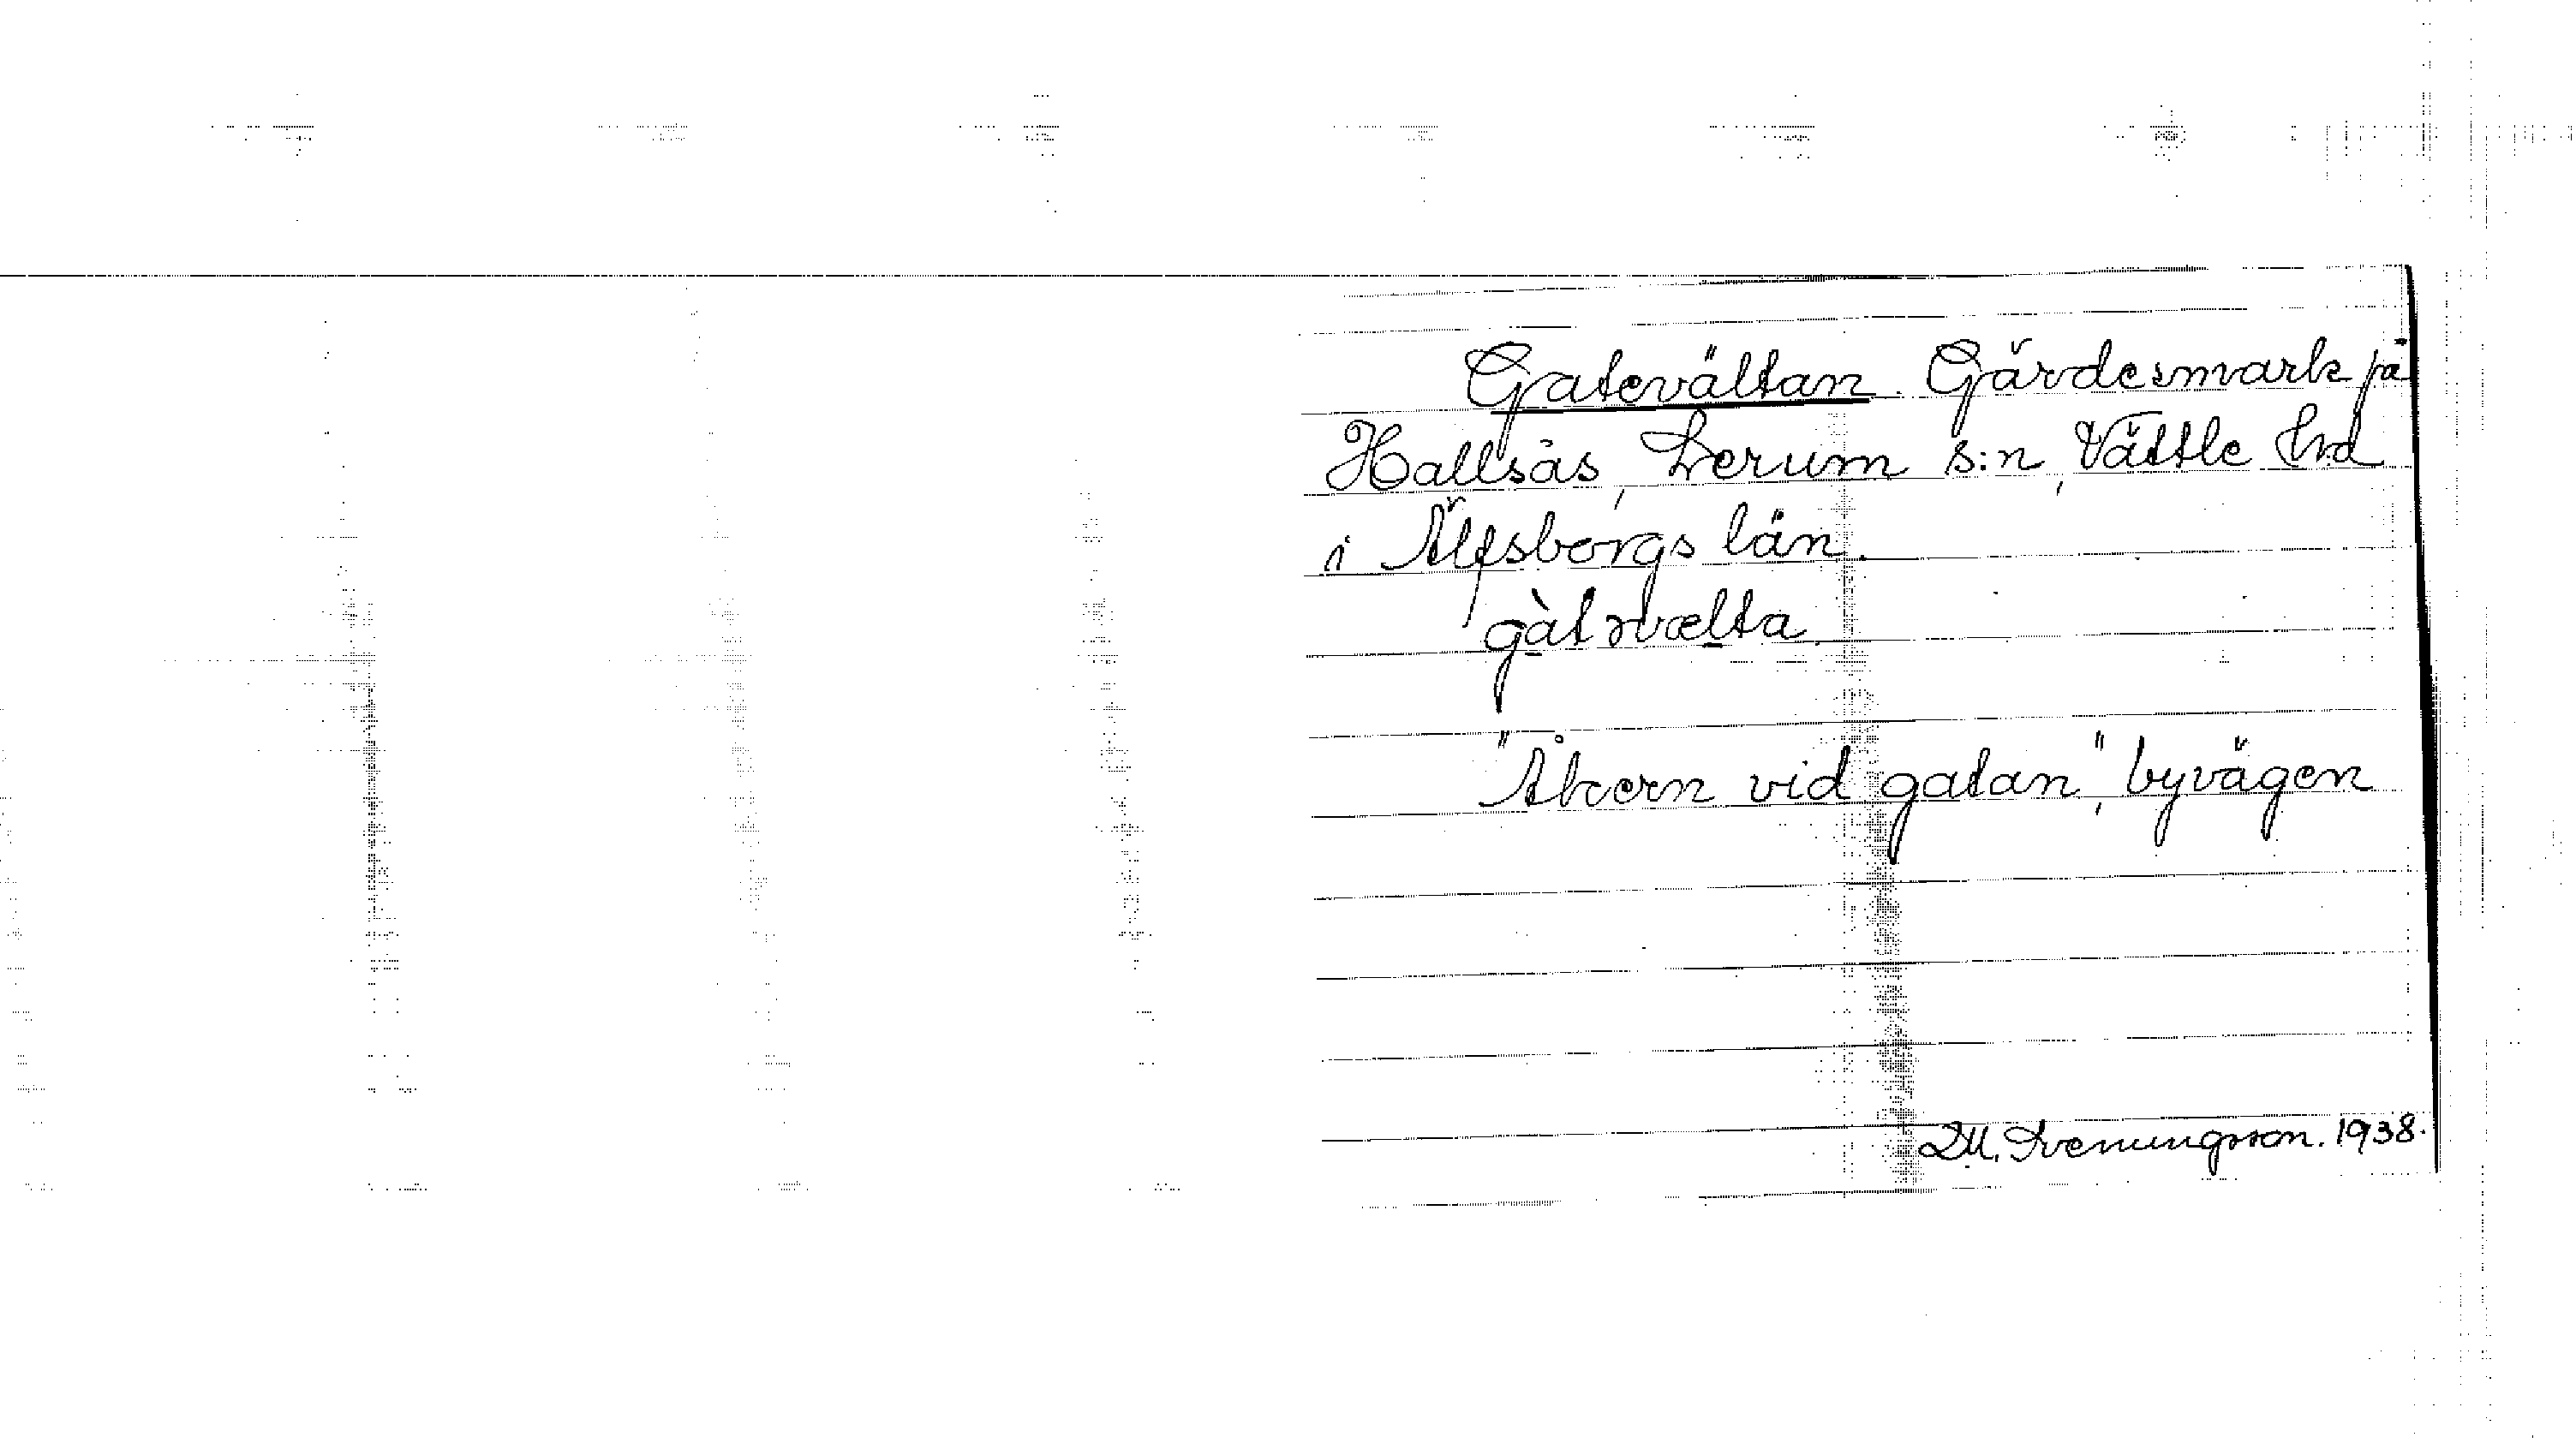 Gatevältan. Gärdesmark på
Hallsås, Lerum s:n, Vättle hd
i Älfsborgs län.
gàtɿvælta.
"Åkern vid gatan", byvägen
1938.